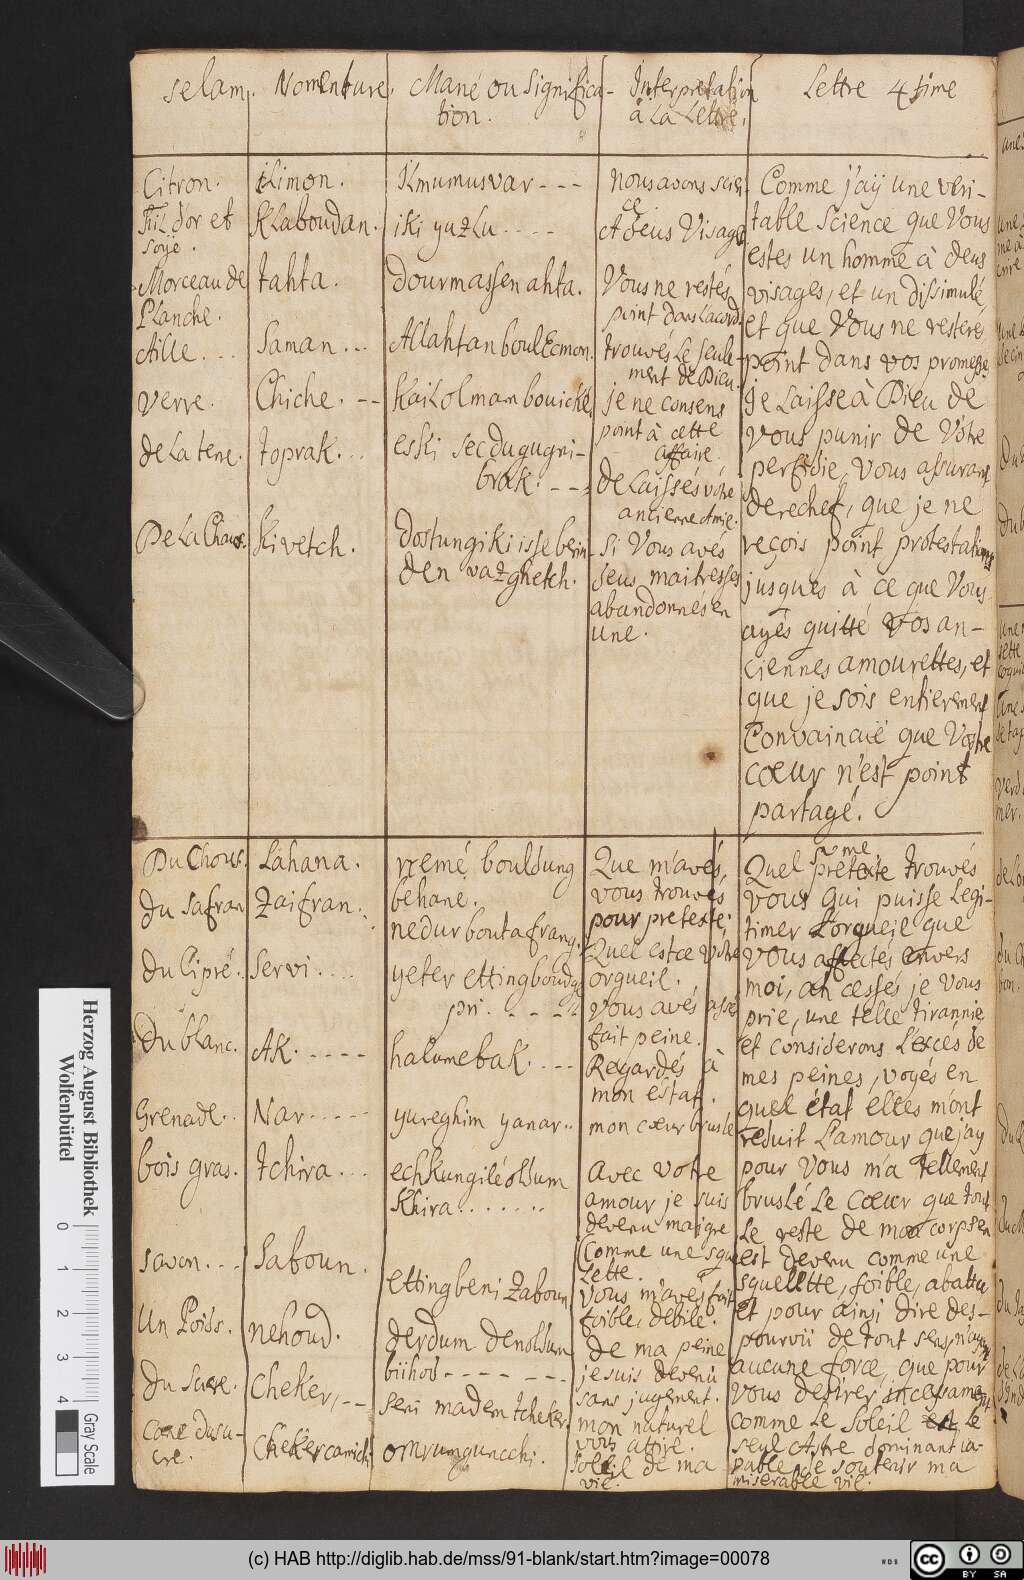 selam. Nomenture. Mané ou Significa- Interpretation Lettre 4time
tion. à La Lettre.
Citron. Limon. Ikmumusvar --- nous avons scien- Comme j'aÿ une veri-
ce
fil d'or et Klaboudan. iki yuzlu .... et deus Visage table Science que Vous
soÿe. estes un homme à deus
Morceau de tahta. dourmassen ahta. Vous ne restés visages, et un dissimulé,
Planche. point dans l'acord. et que Vous ne resterés
Aille ... Saman... Allahtan boul Ecmon. trouvés Le seule- point dans vos promesses,
ment de Dieu.
verre. Chiche. -- kail olmam bouické, je ne consens Je Laisse à Dieu de
point à cette vous punir de Vôtre
affaire.
de La terre. toprak... eski secdugugni- perfidie, Vous assurant
brak. --- de Laissés vôtre derechef, que je ne
ancienne Amie.
De La Chaux. Kivetch. dostungiki isse birin- Si Vous avés reçois point protestations
den vazghetch. seus maitresses jusques à ce que Vous
abandonnés en ayés quitté Vos an-
une. ciennes amourettes, et
que je sois entierement
Convaincüe que Vostre
cœur n'est point
partagé.
Du Chous. Lahana. nemé bouldung Que m'avés, Quel prétexte trouvés
behane. vous trouvés vous qui puisse Legi-
du safran Zaifran. nedur boutafrang. pour pretexte; timer L'orgueil que
Quel est ce vôtre vous affectés envers
du Cipré. Servi .... yeter ettingboudge orgueil. moi, ah cessés je vous
pri. ..... vous avés assé prie, une telle tirannie,
fait peine. et considerons L'excés de
du blanc. AK. ----- halumebak. ... Regardés à mes peines, voyés en
mon estat. quel état elles m'ont
Grenade.. Nar ..... yureghim yanar.. mon cœur bruslé reduit L'amour que j'ay
bois gras. tchira ... echkungilé oldum avec votre pour vous m'a tellement
Khira ....... amour je suis bruslé Le cœur que tout
devenu maigre Le reste de mon corps en
savon... Saboun. Comme une sque est devenu comme une
Lette.
ettingbeni Zaboun vous m'avés fait squelette, foible, abattu
foible, debile. et pour ainsi dire des-
Un Poids. nehoud. derdum den oldum de ma peine pourvû de tout sens, n'ayant
biihod ------- je suis devenû aucune force, que pour
du Sucre. Cheker, -- seni madem tcheker. sans jugement. vous desirer incessament
mon naturel comme Le Soleil est Le
vous attire. seul Astre dominant ca-
Cane dusu- Chekercamich omrumgunechi. Soleil de ma pable de soutenir ma
cre. vie. miserable vie.
Herzog August Bibliothek
Wolfenbüttel
0 1 2 3 4
Gray Scale
(c) HAB http://diglib.hab.de/mss/91-blank/start.htm?image=00078
WDB
cc BY SA